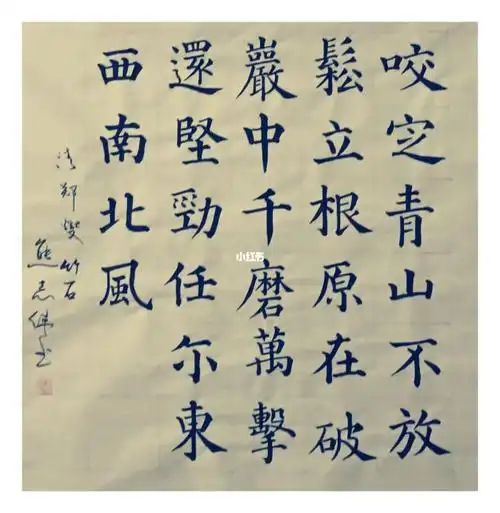 咬定青山不放
鬆立根原在破
巖中千磨萬擊
還堅勁任尔東
西南北風
清鄭燮竹石
焦志偉书
小红书